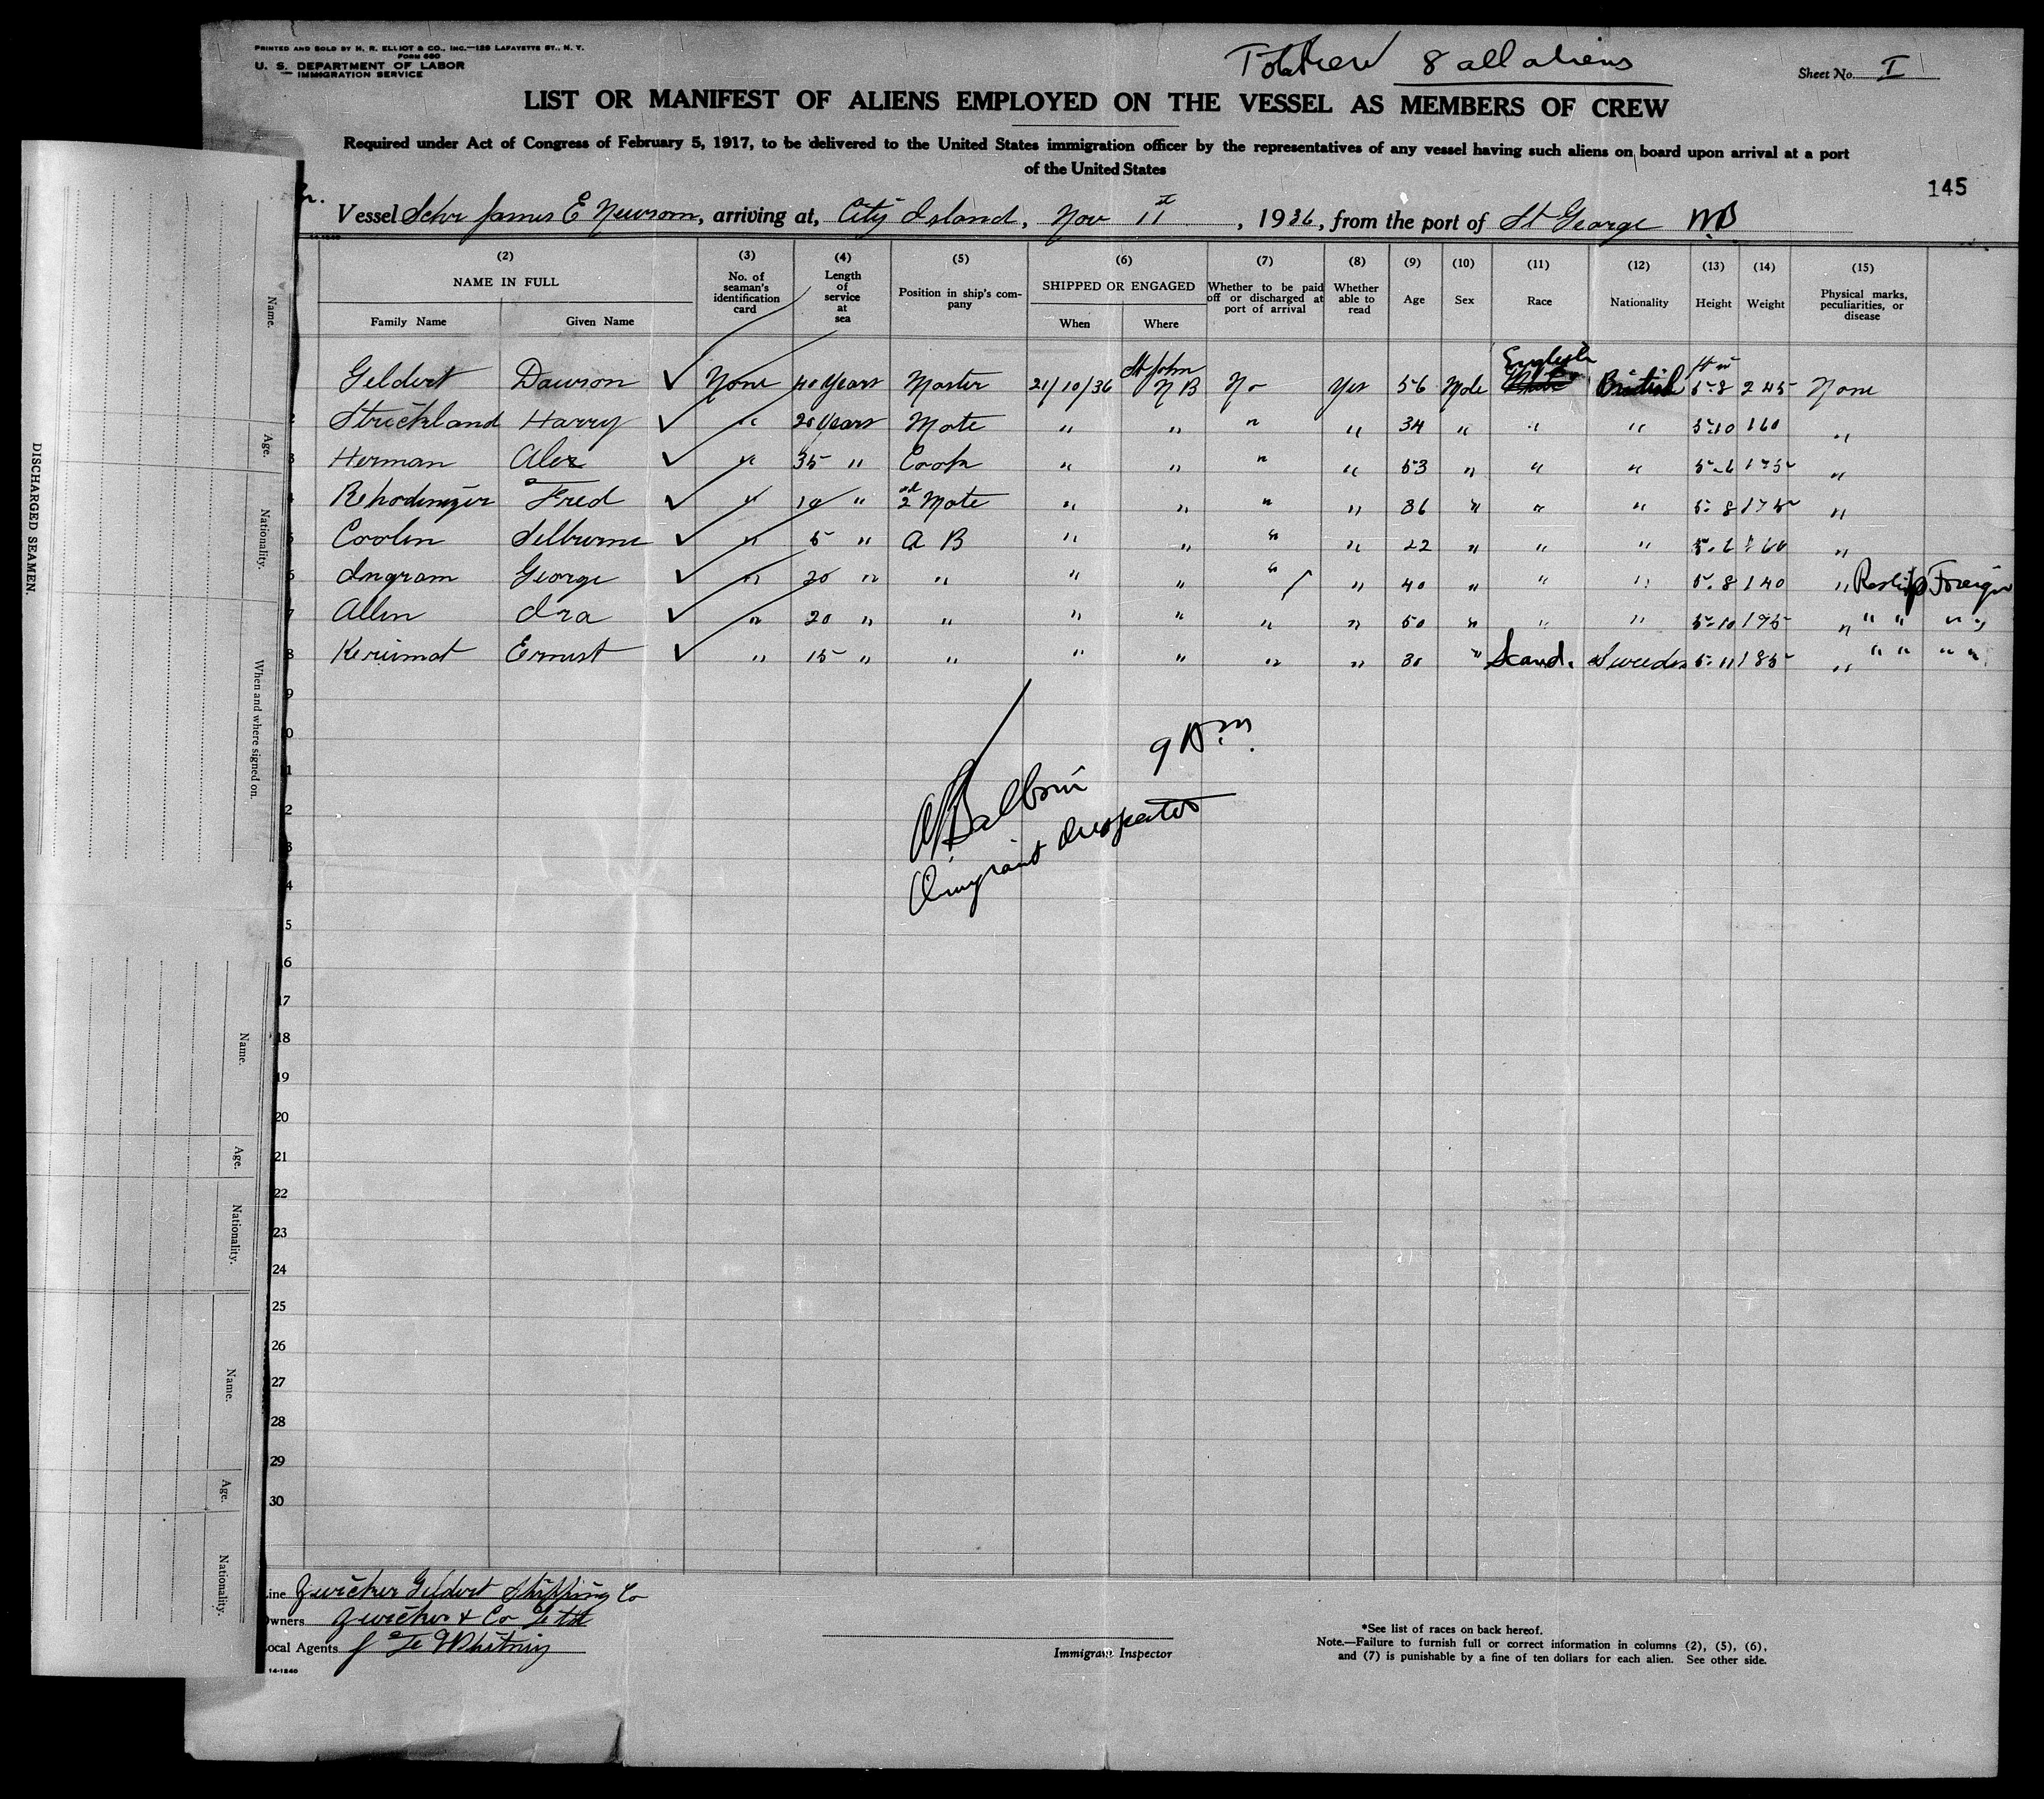 PRINTED AND SOLD BY H. R. ELLIOT & CO., INC.—129 LAFAYETTE ST., N. Y.
FORM 680
U. S. DEPARTMENT OF LABOR
IMMIGRATION SERVICE
8 all aliens
Sheet No. I
LIST OR MANIFEST OF ALIENS EMPLOYED ON THE VESSEL AS MEMBERS OF CREW
Required under Act of Congress of February 5, 1917, to be delivered to the United States immigration officer by the representatives of any vessel having such aliens on board upon arrival at a port
of the United States
145
Vessel Schr James E Newsom, arriving at, City Island, Nov 1st, 1936, from the port of St George NB
(2) NAME IN FULL Family Name Given Name
(3) No. of seaman's identification card
(4) Length of service at sea
(5) Position in ship's company
(6) SHIPPED OR ENGAGED When Where
(7) Whether to be paid off or discharged at port of arrival
(8) Whether able to read
(9) Age
(10) Sex
(11) Race
(12) Nationality
(13) Height
(14) Weight
(15) Physical marks, peculiarities, or disease
Geldert Dawson None 40 Years Master 21/10/36 St John N B No Yes 56 Male English British 5-8 245 None
2 Strickland Harry " 20 Years Mate " " " " 34 " " " 5-10 160 "
3 Herman Alex " 35 " Cook " " " " 53 " " " 5-6 175 "
4 Fred " 10 " 2nd Mate " " " " 36 " " " 5-8 175 "
5 Coolen Selburne " 5 " A B " " " " 22 " " " 5-6 160 "
6 Ingram George " 20 " " " " " " 40 " " " 5-8 140 " Foreign
7 Allen Ira " 20 " " " " " " 50 " " " 5-10 175 " " " " "
8 Ernest " 15 " " " " " " 30 " Scand. Sweden 5-11 185 " " " " "
9
10
11
12
13
14
15
16
17
18
19
20
21
22
23
24
25
26
27
28
29
30
9 AM
Inspector
Line Zwicker Geldert Shipping Co
Owners Zwicker & Co Ltd
Local Agents Whitney
14-1240
Immigrant Inspector
*See list of races on back hereof.
Note.—Failure to furnish full or correct information in columns (2), (5), (6),
and (7) is punishable by a fine of ten dollars for each alien. See other side.
DISCHARGED SEAMEN.
Name.
Age.
Nationality.
When and where signed on.
Name.
Age.
Nationality.
Name.
Age.
Nationality.